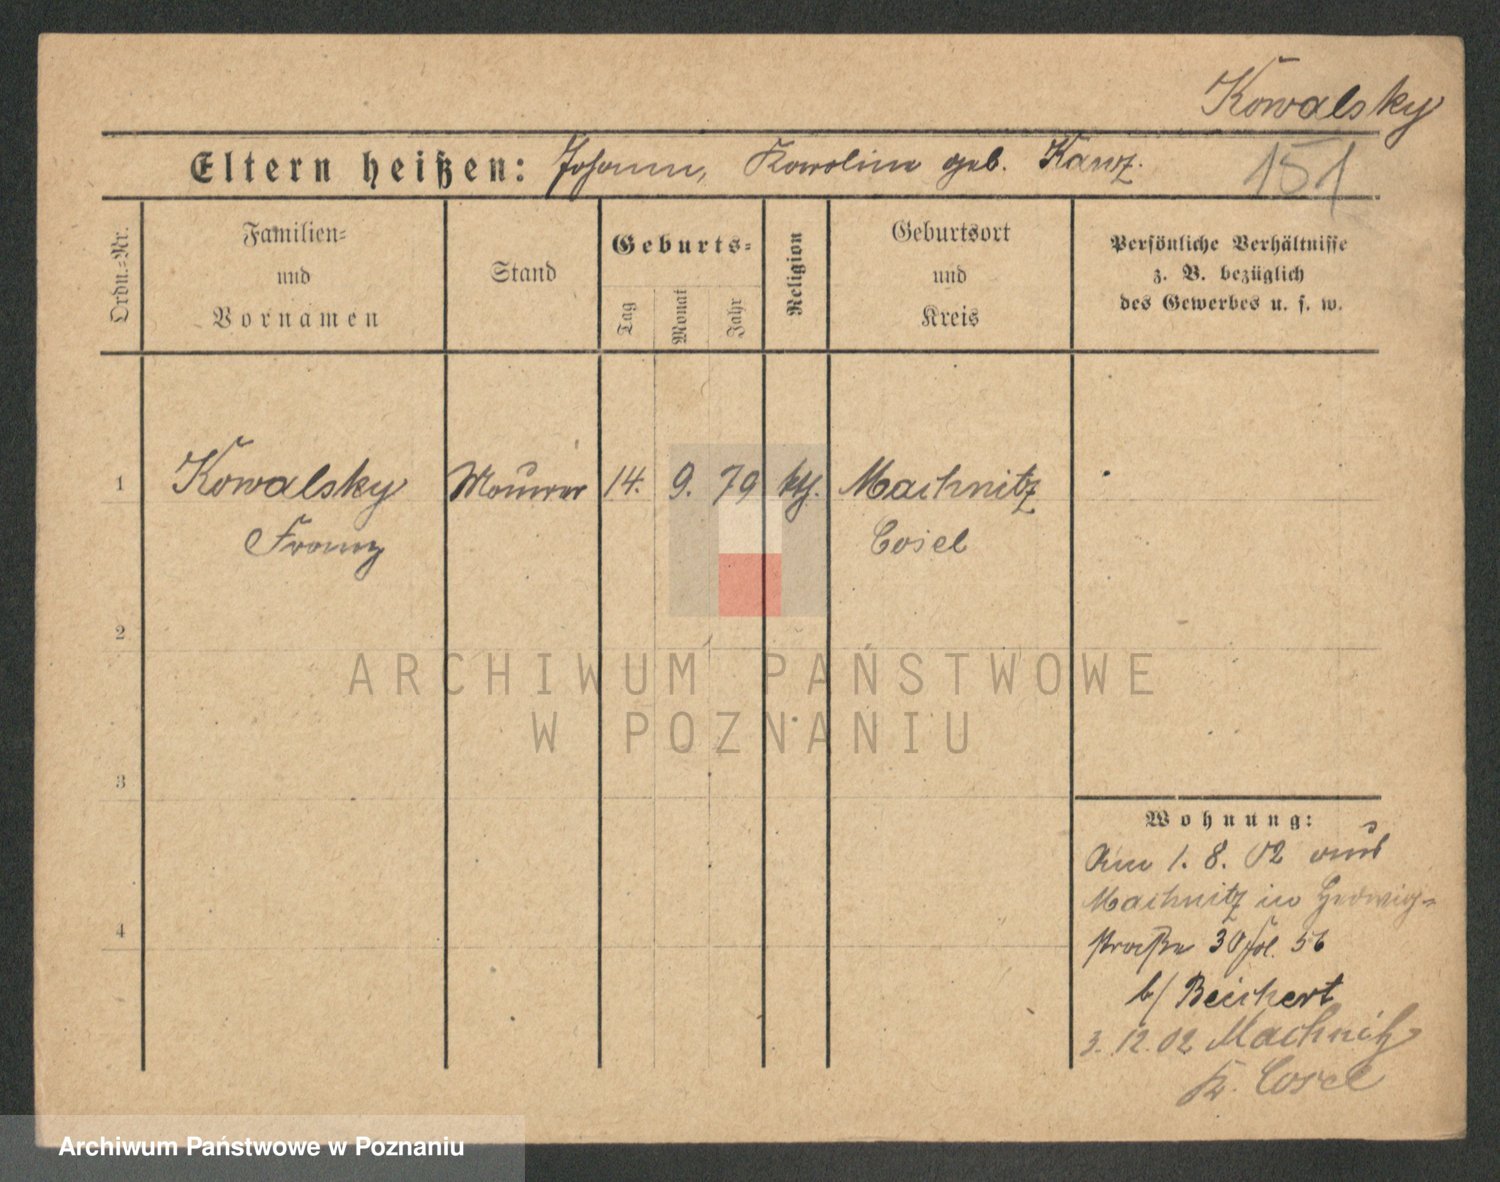 Kowalsky
Eltern heißen: Johann, Karoline geb. Kanz.
151
Ordn.-Nr.
Familien-
und
Vornamen
Stand
Geburts-
Tag
Monat
Jahr
Religion
Geburtsort
und
Kreis
Persönliche Verhältnisse
z. B. bezüglich
des Gewerbes u. s. w.
1 Kowalsky Maurer 14. 9. 79 kth. Machnitz
Franz Cosel
2
3
4
ARCHIWUM PAŃSTWOWE
W POZNANIU
Wohnung:
Am 1. 8. 02 aus
Machnitz in Hedwig-
straße 30 fol. 56
b/ Beichert
3. 12. 02 Machnitz
Kr. Cosel
Archiwum Państwowe w Poznaniu